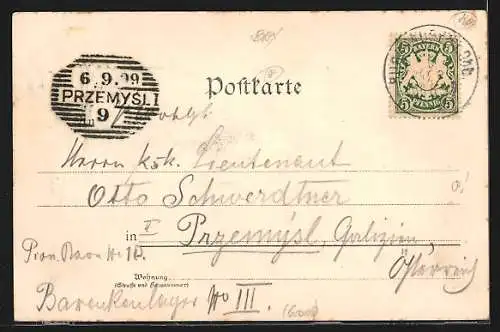 6.9.99
PRZEMYŚL 1
9
Postkarte
BAYERN
5 5
PFENNIG
Herrn k.k. Lieutenant
Otto Schwerdtner
in Przemýsl, Galizien,
Österreich
Wohnung
(Straße und Hausnummer)
Barakenlager No III.